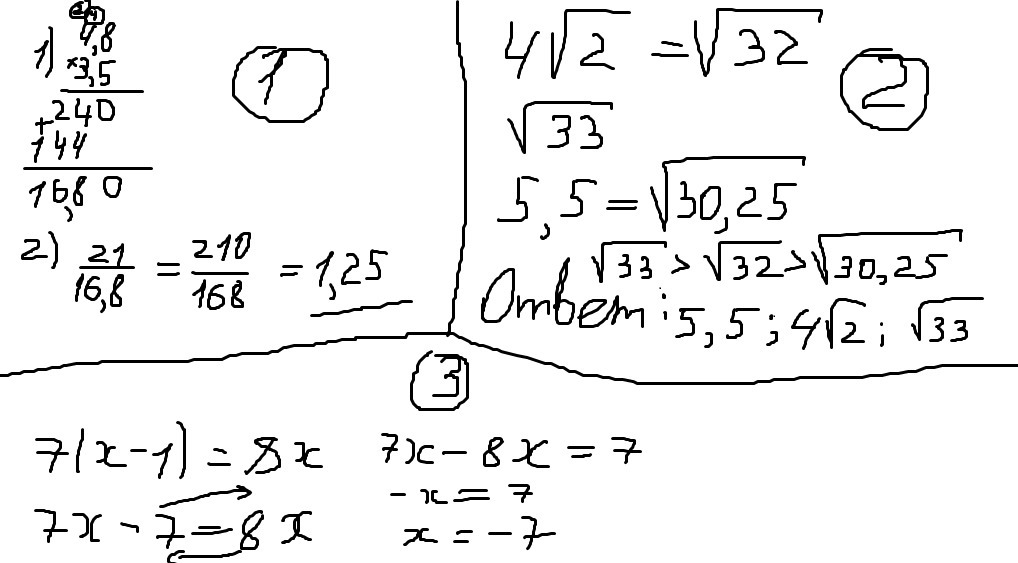 1) 4,8
×3,5
+240
144
16,80
2) 21/16,8 = 210/168 = 1,25
1
4√2 = √32
2
√33
5,5 = √30,25
√33 > √32 > √30,25
Ответ: 5,5; 4√2; √33
3
7(x-1) = 8x
7x - 7 = 8x
7x - 8x = 7
-x = 7
x = -7